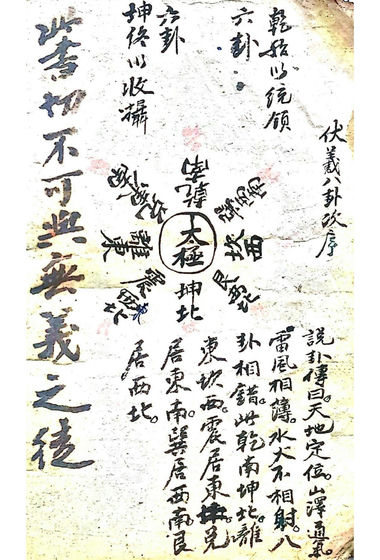 伏羲八卦次序
說卦傳曰。天地定位。山澤通氣。
雷風相薄。水火不相射。八
卦相錯。此乾南坤北。離
東坎西。震居東北。兌
居東南。巽居西南。艮
居西北。
乾始以統領
六卦
坤終以收攝
六卦
乾南
巽西南
坎西
艮西北
坤北
震東北
離東
兌東南
太極
此書切不可與無義之徒